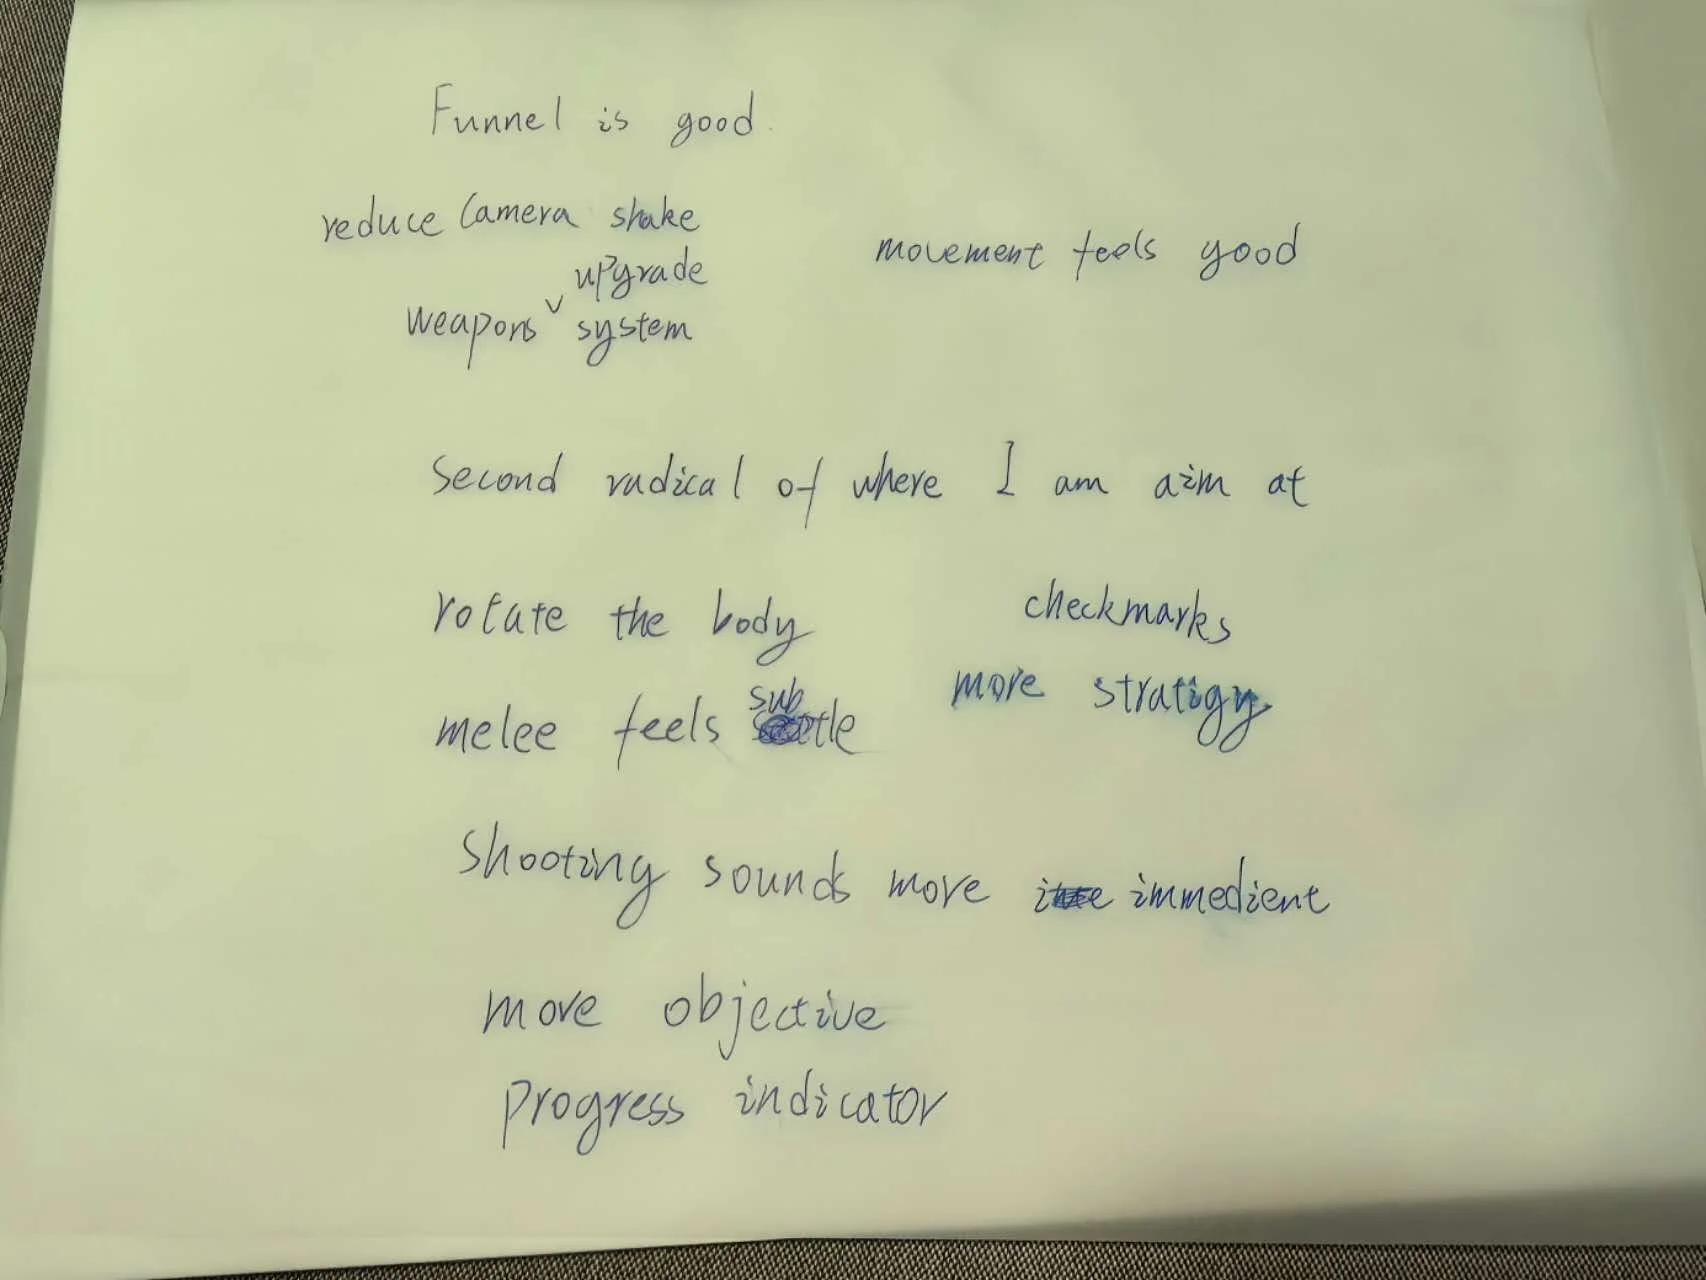 Funnel is good.
reduce Camera shake
movement feels good
weapons upgrade system
second radical of where I am aim at
rotate the body
checkmarks
more stratigy
melee feels subtle
shooting sounds more immedient
more objective
progress indicator